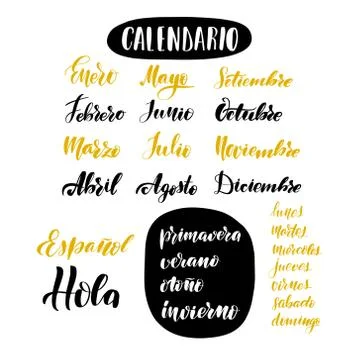 CALENDARIO
Enero Mayo Setiembre
Febrero Junio Octubre
Marzo Julio Noviembre
Abril Agosto Diciembre
Español
Hola
primavera
verano
otoño
invierno
lunes
martes
miercoles
jueves
virnes
sabado
domingo